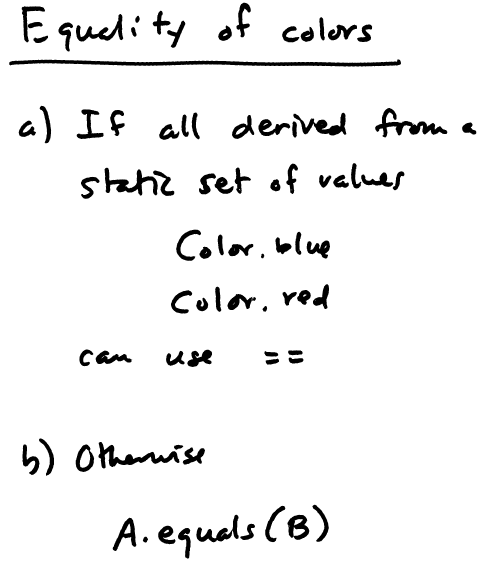 Equality of colors
a) If all derived from a
static set of values
Color.blue
Color.red
can use ==
b) Otherwise
A.equals(B)